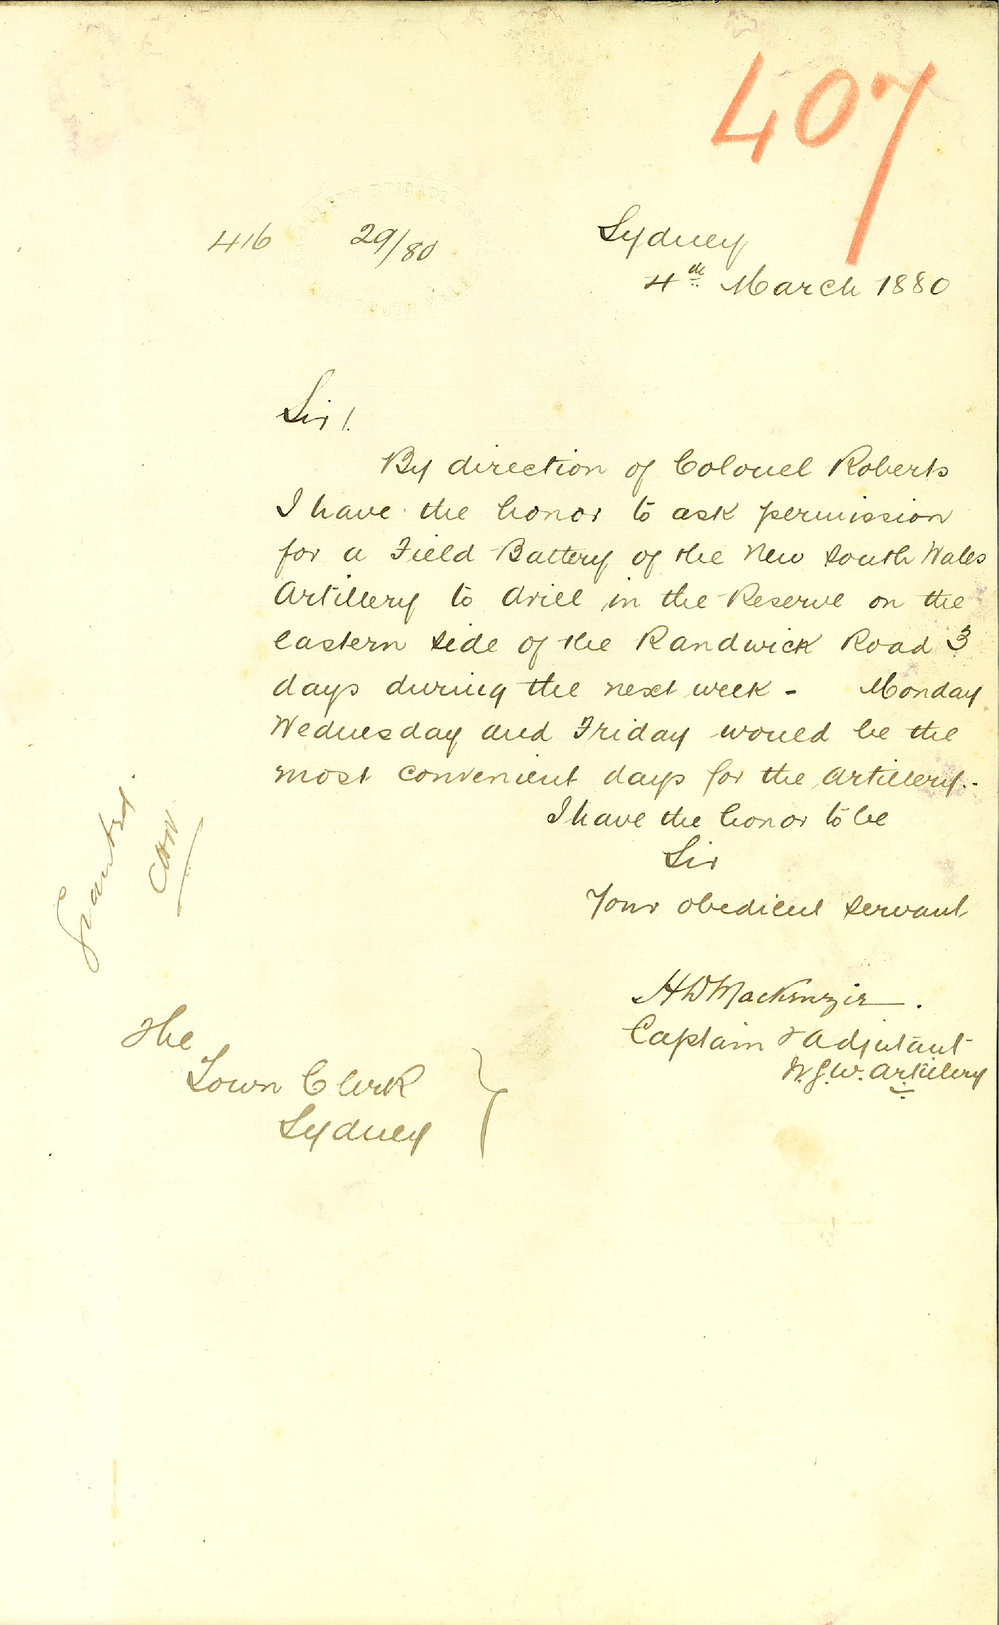 407
416 29/80
Sydney
4th March 1880
Sir!
By direction of Colonel Roberts
I have the honor to ask permission
for a Field Battery of the New South Wales
Artillery to drill in the Reserve on the
eastern side of the Randwick Road 3
days during the next week - Monday
Wednesday and Friday would be the
most convenient days for the Artillery.-
I have the honor to be
Sir
Your obedient servant
HDMacKenzie.
Captain & Adjutant
N.S.W. Artillery
Granted.
The
Town Clerk
Sydney